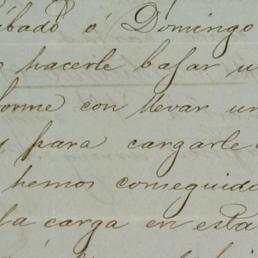 ábado ó Domingo
hacerle bajar u
forme con llevar un
para cargarle
hemos conseguido
la carga en esta